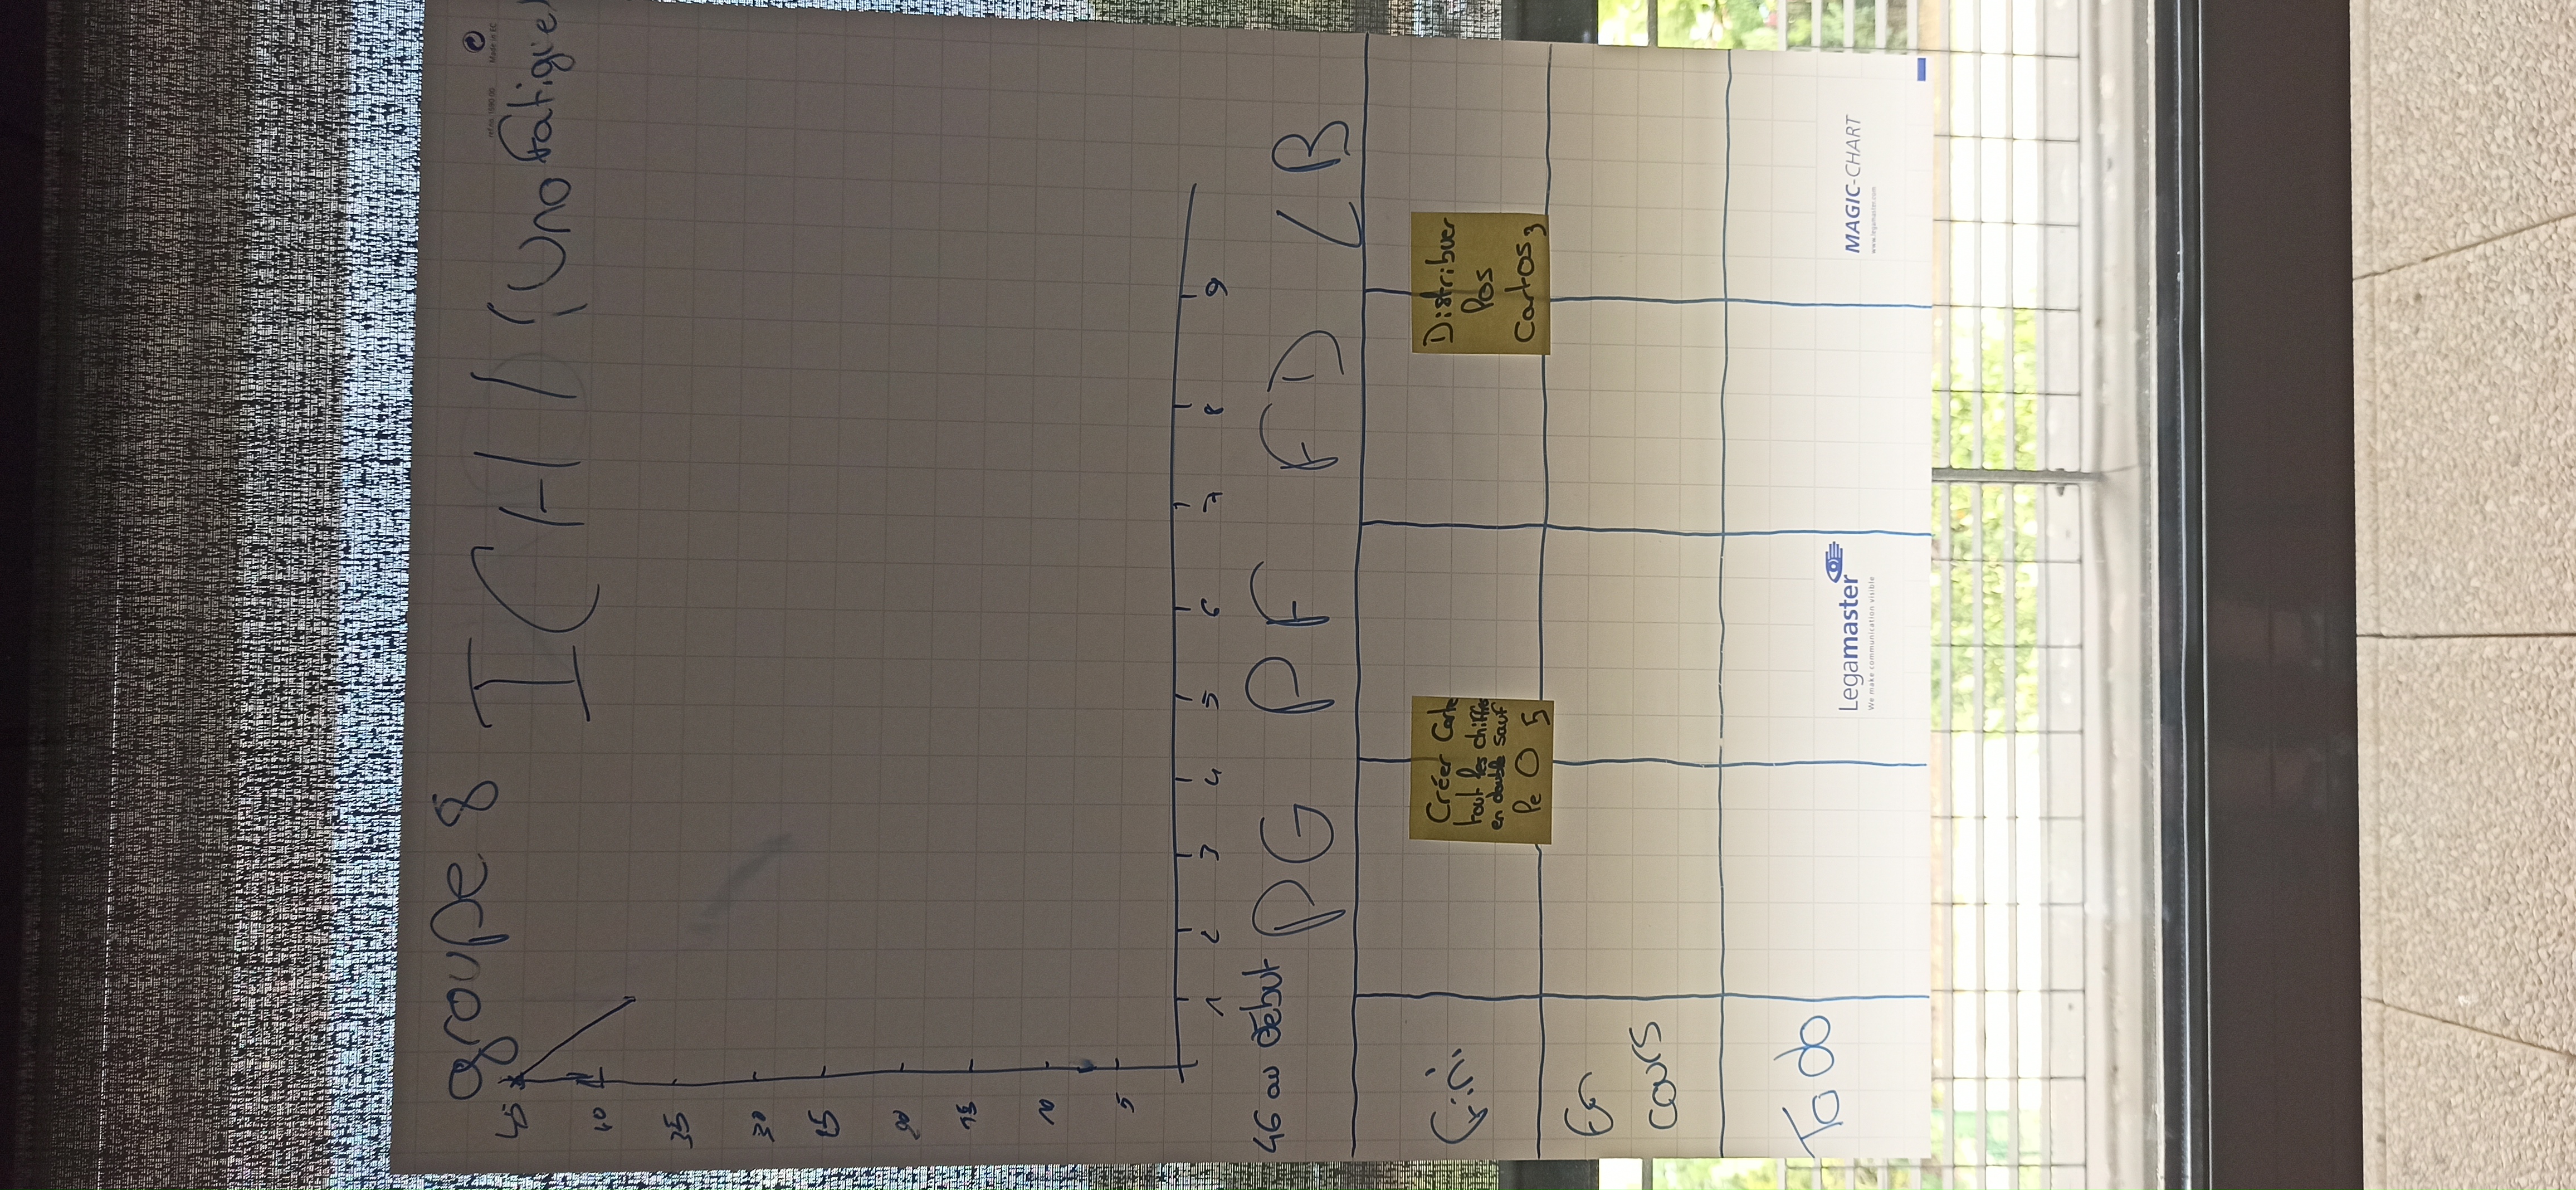 groupe 8
ICHI (Uno fatigue)
ref.no. 1590 00
Made in EC
45
40
35
30
25
20
15
10
5
1 2 3 4 5 6 7 8 9
46 au début
PG PF FD LB
Fini
Créer Carte
tout les chiffres
en double sauf
le 0 5
Distribuer
les
cartes 3
En
cours
To do
Legamaster
We make communication visible
MAGIC-CHART
www.legamaster.com